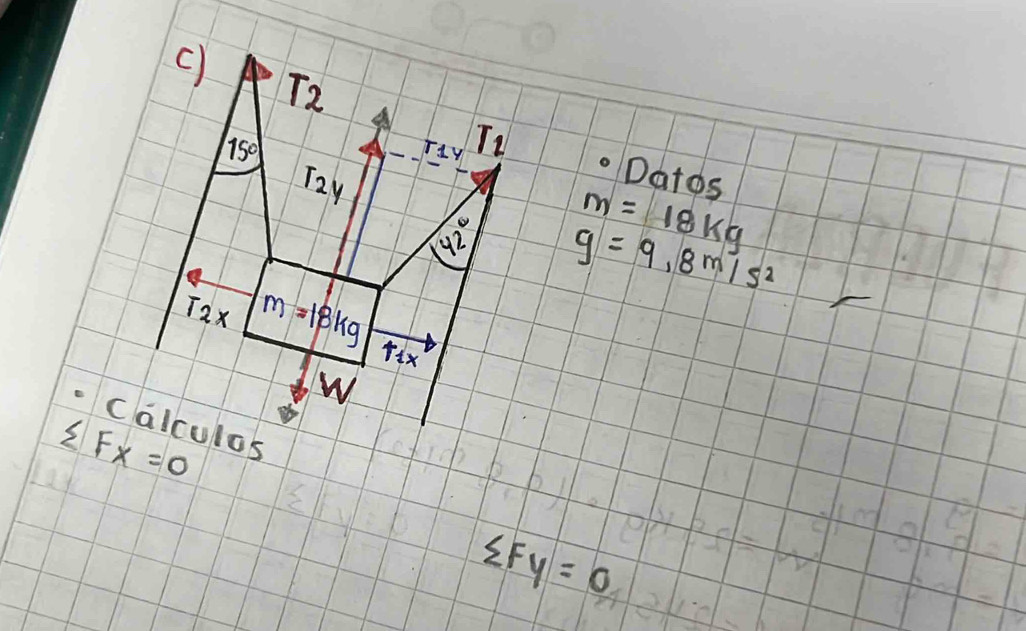 c)
T2
15°
T2y
T1y
T1
42°
T2x
m = 18kg
T1x
W
• Datos
m = 18Kg
g = 9,8m/s²
• Cálculos
ΣFx = 0
ΣFy = 0